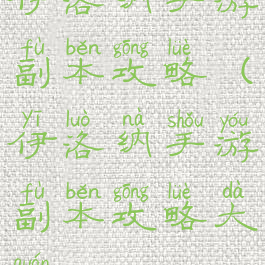 伊洛纳手游
fù běn gōng luè
副本攻略（
yī luò nà shǒu yóu
伊洛纳手游
fù běn gōng luè dà
副本攻略大
quán